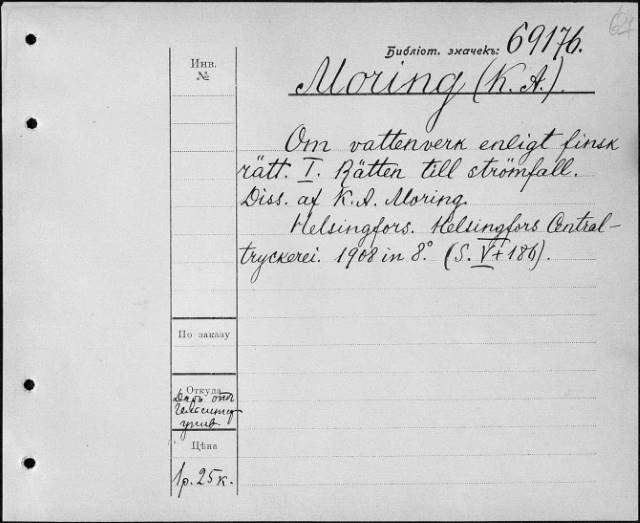 64
Библіот. значекъ: 69176.
Инв.
№
Moring (K. A.).
Om vattenverk enligt finsk
rätt. I. Rätten till strömfall.
Diss. af K. A. Moring.
Helsingfors. Helsingfors Central-
tryckerei. 1908 in 8.° (S. V+186).
По заказу
Откуда
Даръ отъ
Гельсингф
унив
Цѣна
1р. 25к.